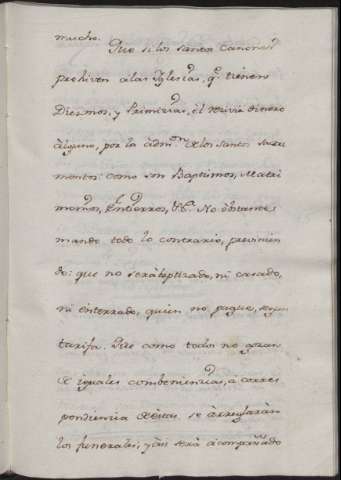 mucho.
Que si los santos Canones
prohiven a las Yglesias, q.e tienen
Diezmos, y Primicias, el recivir dinero
alguno, por la adm.on de los santos Sacra
mentos: como son Baptismos, Matri
monios, Entierros, &.a No obstante
mando todo lo contrario, previnien
do: que no será baptizado, ni casado,
ni enterrado, quien no pague, segun
tarifa. Pero como todos no gozan
de iguales combeniencias, a corres
pondiencia de estas se arreglarán
los funerales, y asi será acompañado